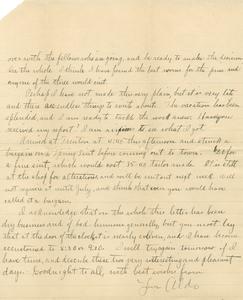 over with the fellows who are going, and be ready to make the decision
for the whole. I think I have found the best rooms for the price and
anyone of the three would suit.
Perhaps I have not made this very plain, but it is very late
and there are endless things to write about. The vacation has been
splendid, and I am ready to tackle the work anew. Have you
received my report? I am anxious to see what I got.
Arrived at Trenton at 4:45 this afternoon and struck a
bargain on a suit before coming out to town. Got for
a fine suit, which would cost 35-40 tailor made. It is still
at the shop for alterations and will be sent out next week. Will
not require it until July, and think that even you would have
called it a bargain.
I acknowledge that on the whole this letter has been
dry business and of bad humor generally, but you must
that at the the clock is nearly eleven, and I have become
accustomed to 8:30 or 9:00. I will try again tomorrow if I
have time, and describe these two very interesting and pleasant
days. Goodnight to all, with best wishes from